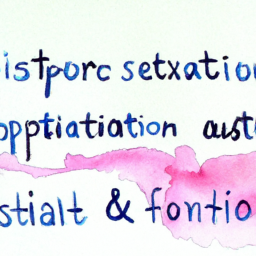 istporc setxatio
opptiatiation aust
stialt & fontio